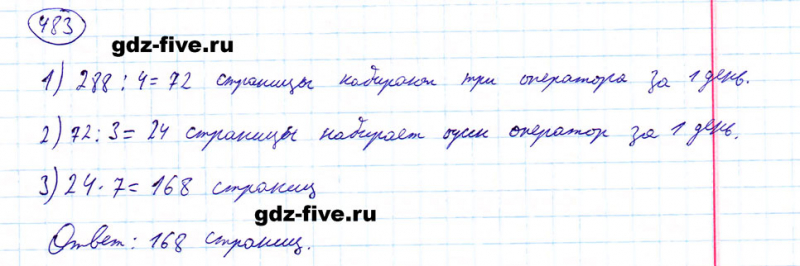 483
gdz-five.ru
1) 288 : 4 = 72 страницы набирают три оператора за 1 день.
2) 72 : 3 = 24 страницы набирает один оператор за 1 день.
3) 24 · 7 = 168 страниц
gdz-five.ru
Ответ: 168 страниц.